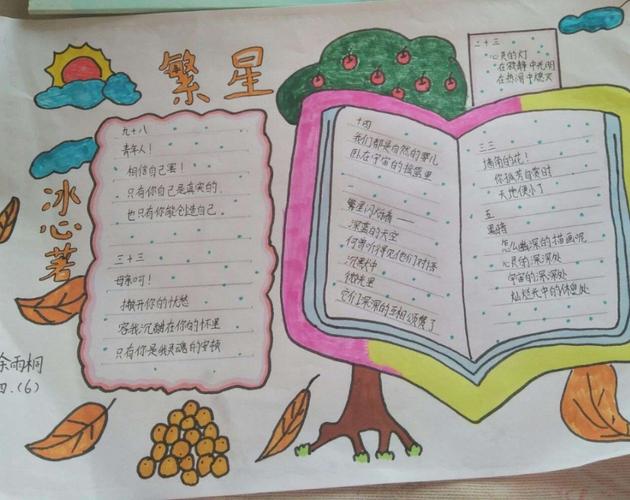 繁星
冰心著
余雨桐
四.(6)
九十八
青年人!
相信自己罢!
只有你自己是真实的
也只有你能创造自己.
三十三
母亲呵!
撇开你的忧愁
容我沉酣在你的怀里
只有你是我灵魂的安顿
十四
我们都是自然的婴儿
卧在宇宙的摇篮里
一
繁星闪烁着——
深蓝的天空
何曾听得见他们对语
沉默中
微光里
它们深深的互相颂赞了
二十三
心灵的灯
在寂静中光明
在热闹中熄灭
三三
墙角的花!
你孤芳自赏时
天地便小了
五
黑暗
怎么幽深的描画呢
心灵的深深处
宇宙的深深处
灿烂光中的休息处